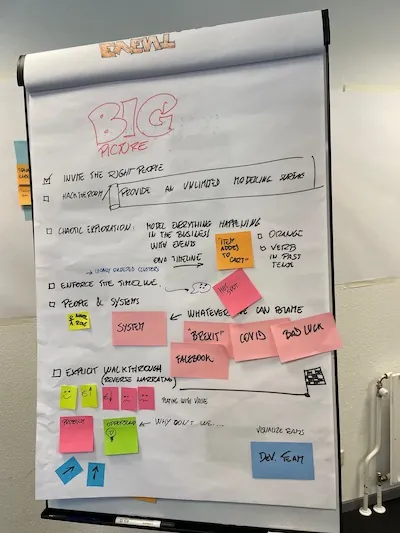 EVENT
BIG
PICTURE
INVITE THE RIGHT PEOPLE
HACK THE ROOM
PROVIDE AN UNLIMITED MODELLING SURFACE
CHAOTIC EXPLORATION: MODEL EVERYTHING HAPPENING
IN THE BUSINESS
WITH EVENTS
ON A TIMELINE
"ITEM
ADDED
TO
CART"
ORANGE
VERB
IN PAST
TENSE
LOCALLY ORDERED CLUSTERS
ENFORCE THE TIMELINE
HOT SPOT
PEOPLE & SYSTEMS
WHATEVER WE CAN BLAME
SYSTEM
"BREXIT"
COVID
BAD LUCK
FACEBOOK
EXPLICIT WALKTHROUGH
(REVERSE NARRATIVE)
PLAYING WITH VALUE
PROBLEM
OPPORTUNITY
WHY DON'T WE....
VISUALIZE TEAMS
DEV. TEAM